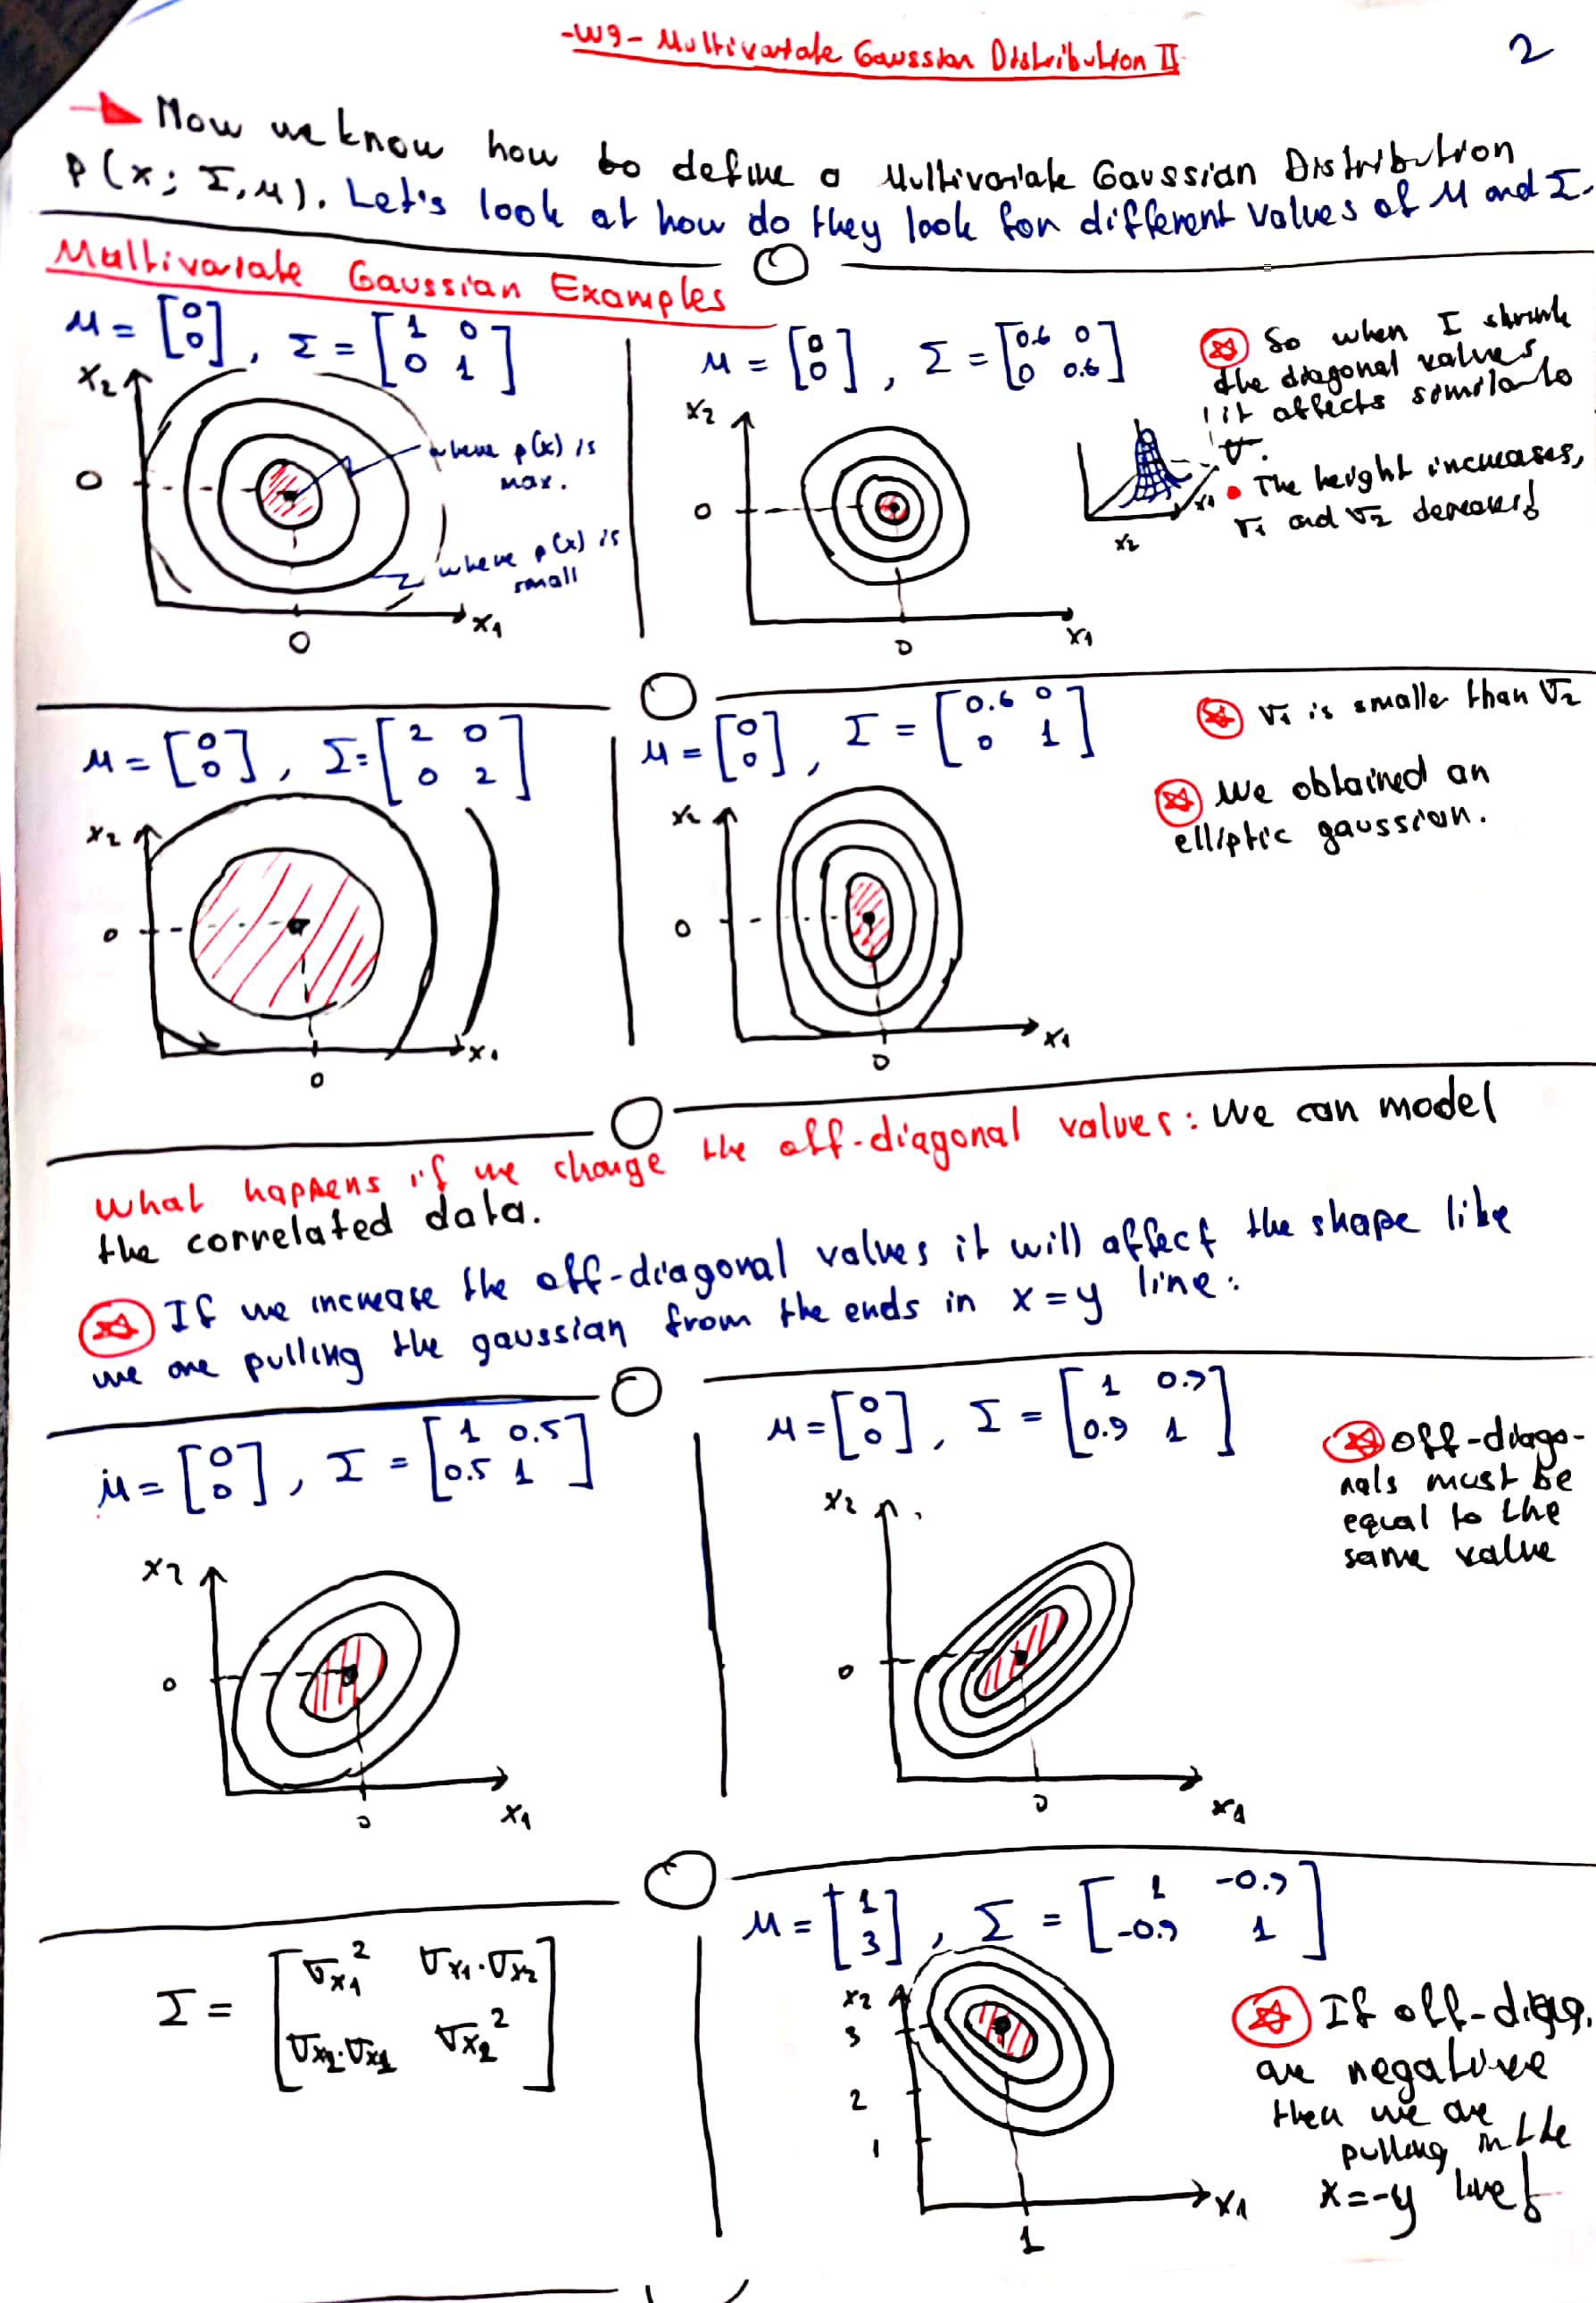 -W9- Multivariate Gaussian Distribution II
2
Now we know how to define a Multivariate Gaussian Distribution
p(x; Σ, μ). Let's look at how do they look for different values of μ and Σ.
Multivariate Gaussian Examples
μ = [0 0], Σ = [1 0
0 1]
x2
0
where p(x) is
max.
where p(x) is
small
0
x1
μ = [0 0], Σ = [0.6 0
0 0.6]
x2
0
0
x1
So when I shrink
the diagonal values
it affects similar to
σ.
x1
x2
• The height increases,
σ1 and σ2 decreases!
μ = [0 0], Σ = [2 0
0 2]
x2
0
x1
0
μ = [0 0], Σ = [0.6 0
0 1]
x2
0
x1
0
σ1 is smaller than σ2
We obtained an
elliptic gaussian.
What happens if we change the off-diagonal values: We can model
the correlated data.
If we increase the off-diagonal values it will affect the shape like
we are pulling the gaussian from the ends in x=y line:
μ = [0 0], Σ = [1 0.5
0.5 1]
x2
0
0
x1
μ = [0 0], Σ = [1 0.9
0.9 1]
x2
0
0
x1
off-diago-
nals must be
equal to the
same value
Σ = [σx1² σx1·σx2
σx2·σx1 σx2²]
μ = [1 3], Σ = [1 -0.9
-0.9 1]
x2
3
2
1
x1
1
If off-diag.
are negative
then we are
pulling in the
x=-y line!